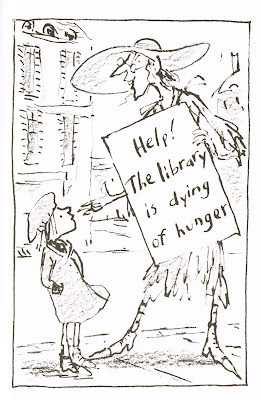 Help!
The library
is dying
of hunger